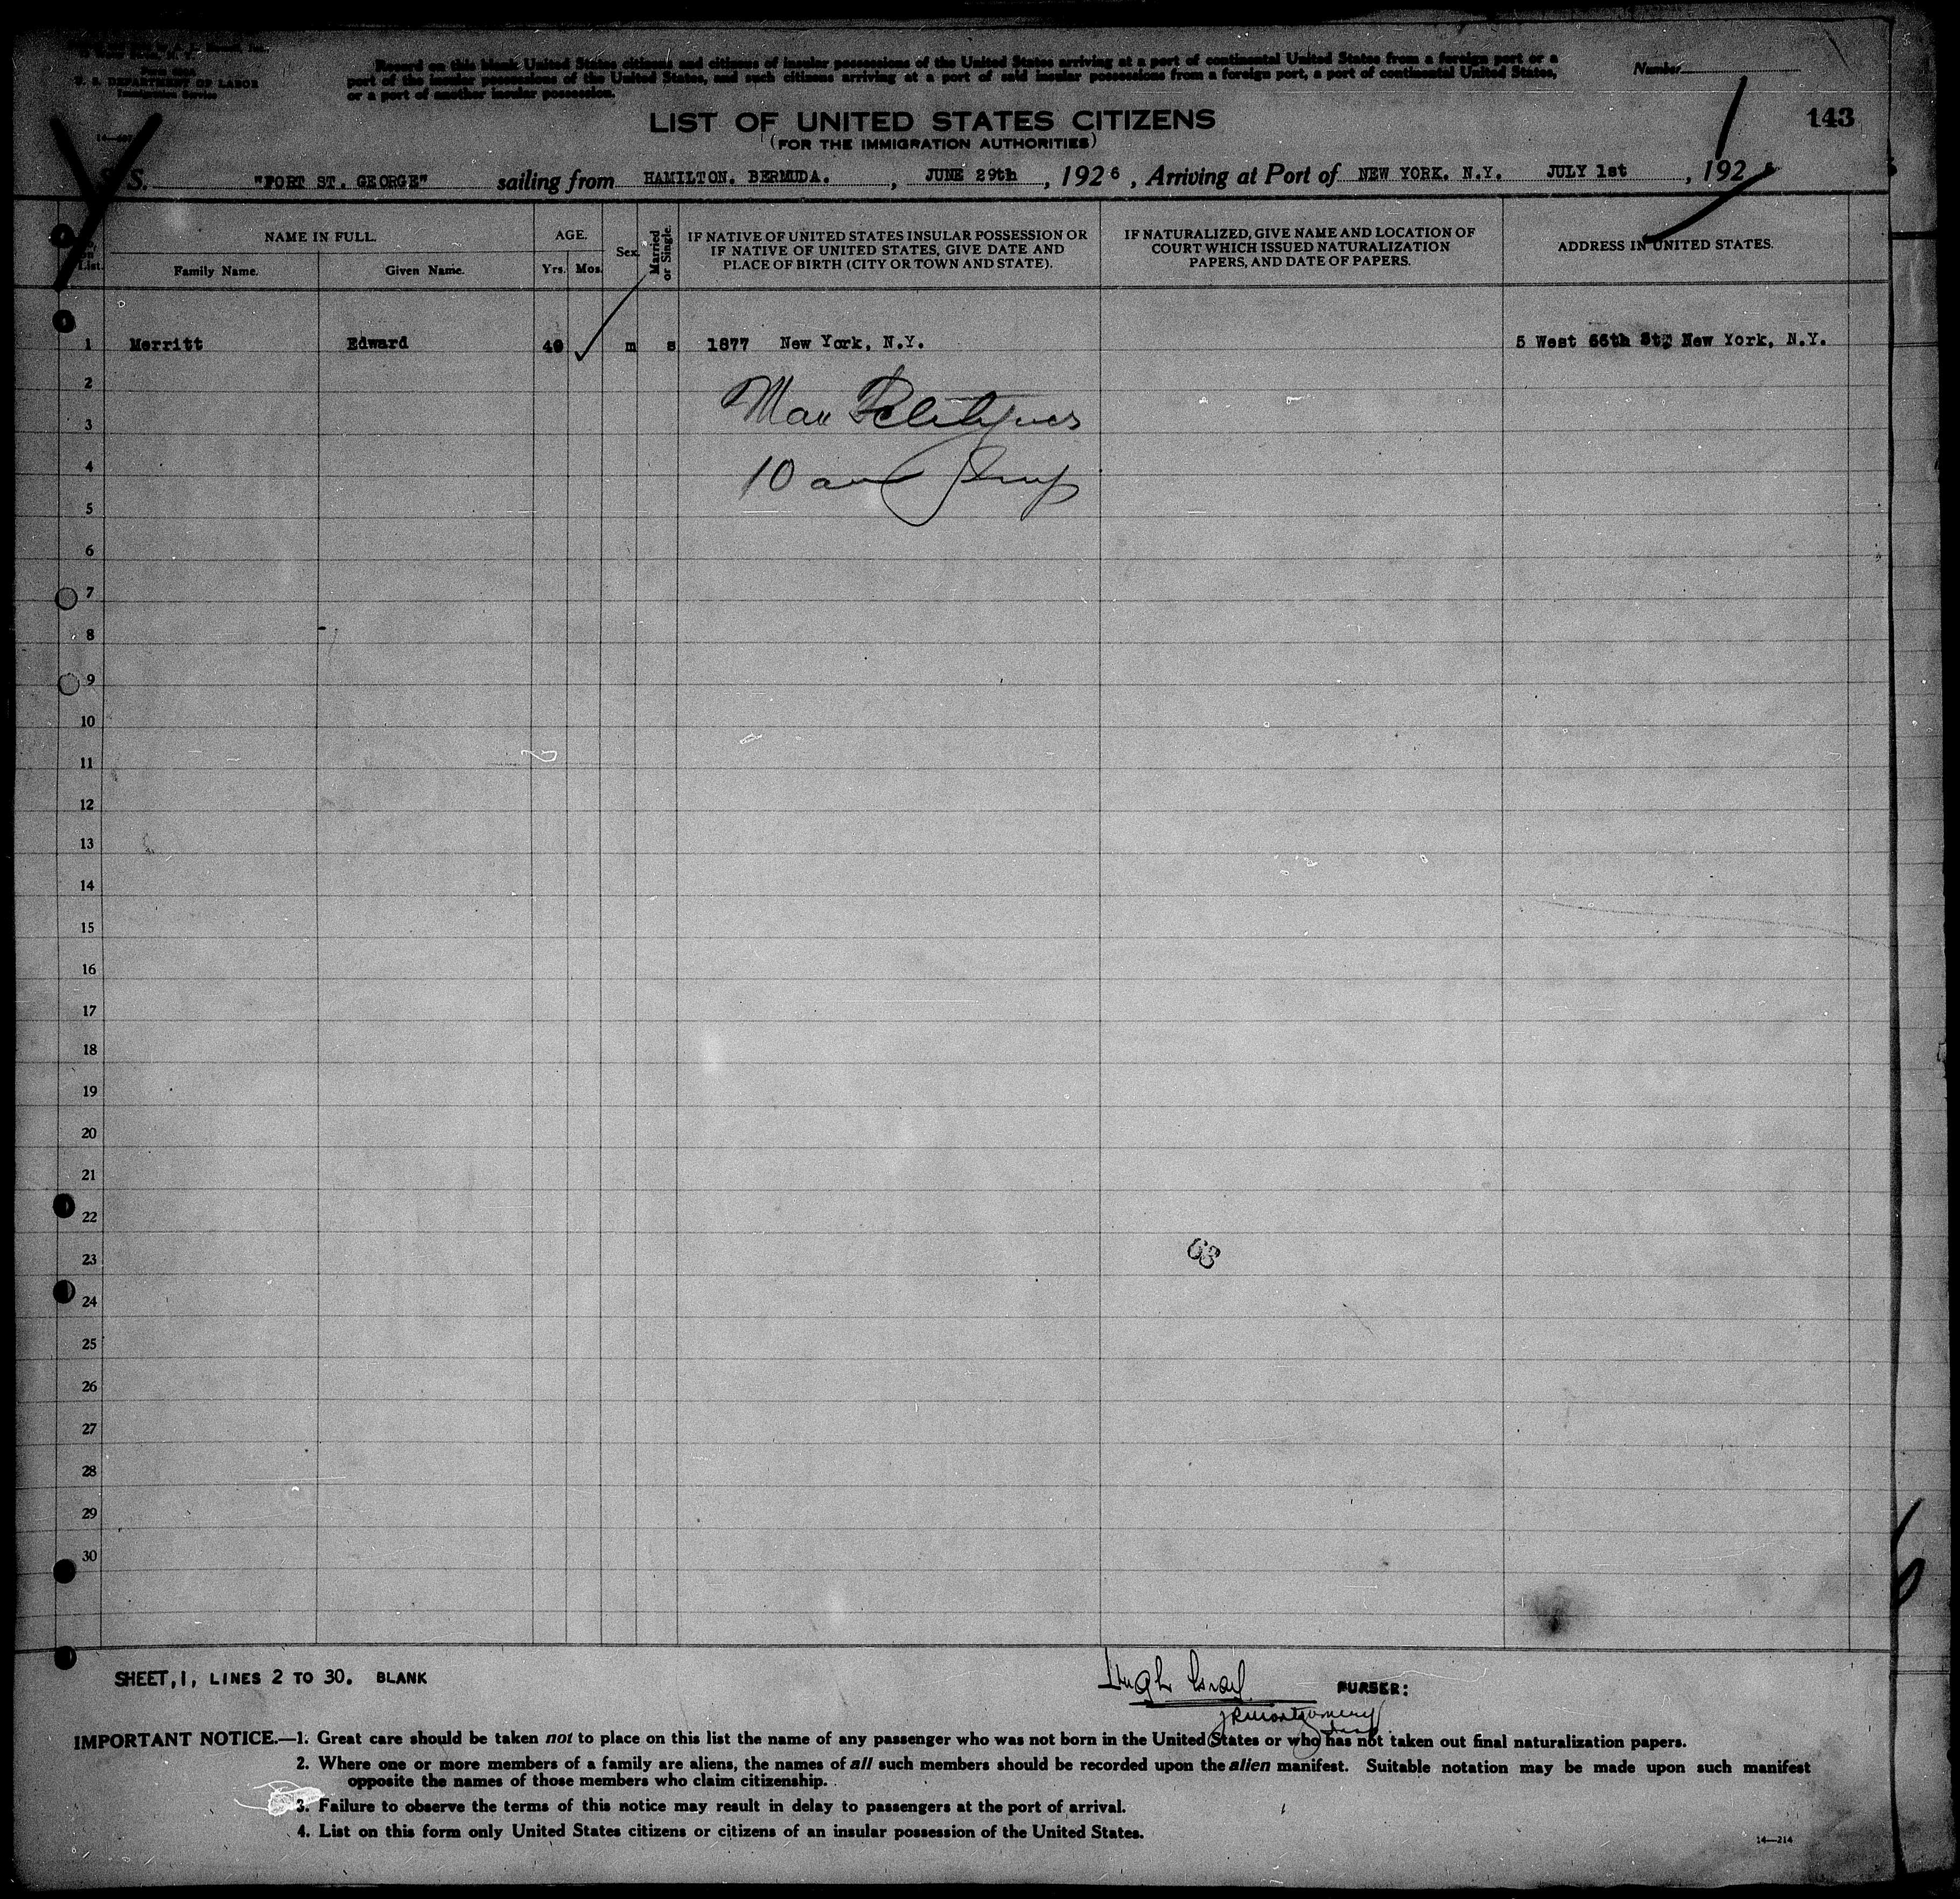 U. S. DEPARTMENT OF LABOR
Immigration Service
Record on this blank United States citizens and citizens of insular possessions of the United States arriving at a port of continental United States from a foreign port or a
port of the insular possessions of the United States, and such citizens arriving at a port of said insular possessions from a foreign port, a port of continental United States,
or a port of another insular possession.
Number
143
LIST OF UNITED STATES CITIZENS
(FOR THE IMMIGRATION AUTHORITIES)
S. S. "FORT ST. GEORGE" sailing from HAMILTON. BERMUDA. , JUNE 29th , 1926 , Arriving at Port of NEW YORK. N.Y. JULY 1st , 192
List.
NAME IN FULL.
Family Name. Given Name.
AGE.
Yrs. Mos.
Sex.
Married or Single.
IF NATIVE OF UNITED STATES INSULAR POSSESSION OR
IF NATIVE OF UNITED STATES, GIVE DATE AND
PLACE OF BIRTH (CITY OR TOWN AND STATE).
IF NATURALIZED, GIVE NAME AND LOCATION OF
COURT WHICH ISSUED NATURALIZATION
PAPERS, AND DATE OF PAPERS.
ADDRESS IN UNITED STATES.
1 Merritt Edward 49 m s 1877 New York, N.Y. 5 West 66th St, New York, N.Y.
2
3
4
5
6
7
8
9
10
11
12
13
14
15
16
17
18
19
20
21
22
23
24
25
26
27
28
29
30
63
SHEET, 1, LINES 2 TO 30. BLANK
Hugh Israel PURSER:
JR Montgomery
Insp
IMPORTANT NOTICE.—1. Great care should be taken not to place on this list the name of any passenger who was not born in the United States or who has not taken out final naturalization papers.
2. Where one or more members of a family are aliens, the names of all such members should be recorded upon the alien manifest. Suitable notation may be made upon such manifest
opposite the names of those members who claim citizenship.
3. Failure to observe the terms of this notice may result in delay to passengers at the port of arrival.
4. List on this form only United States citizens or citizens of an insular possession of the United States.
14—214